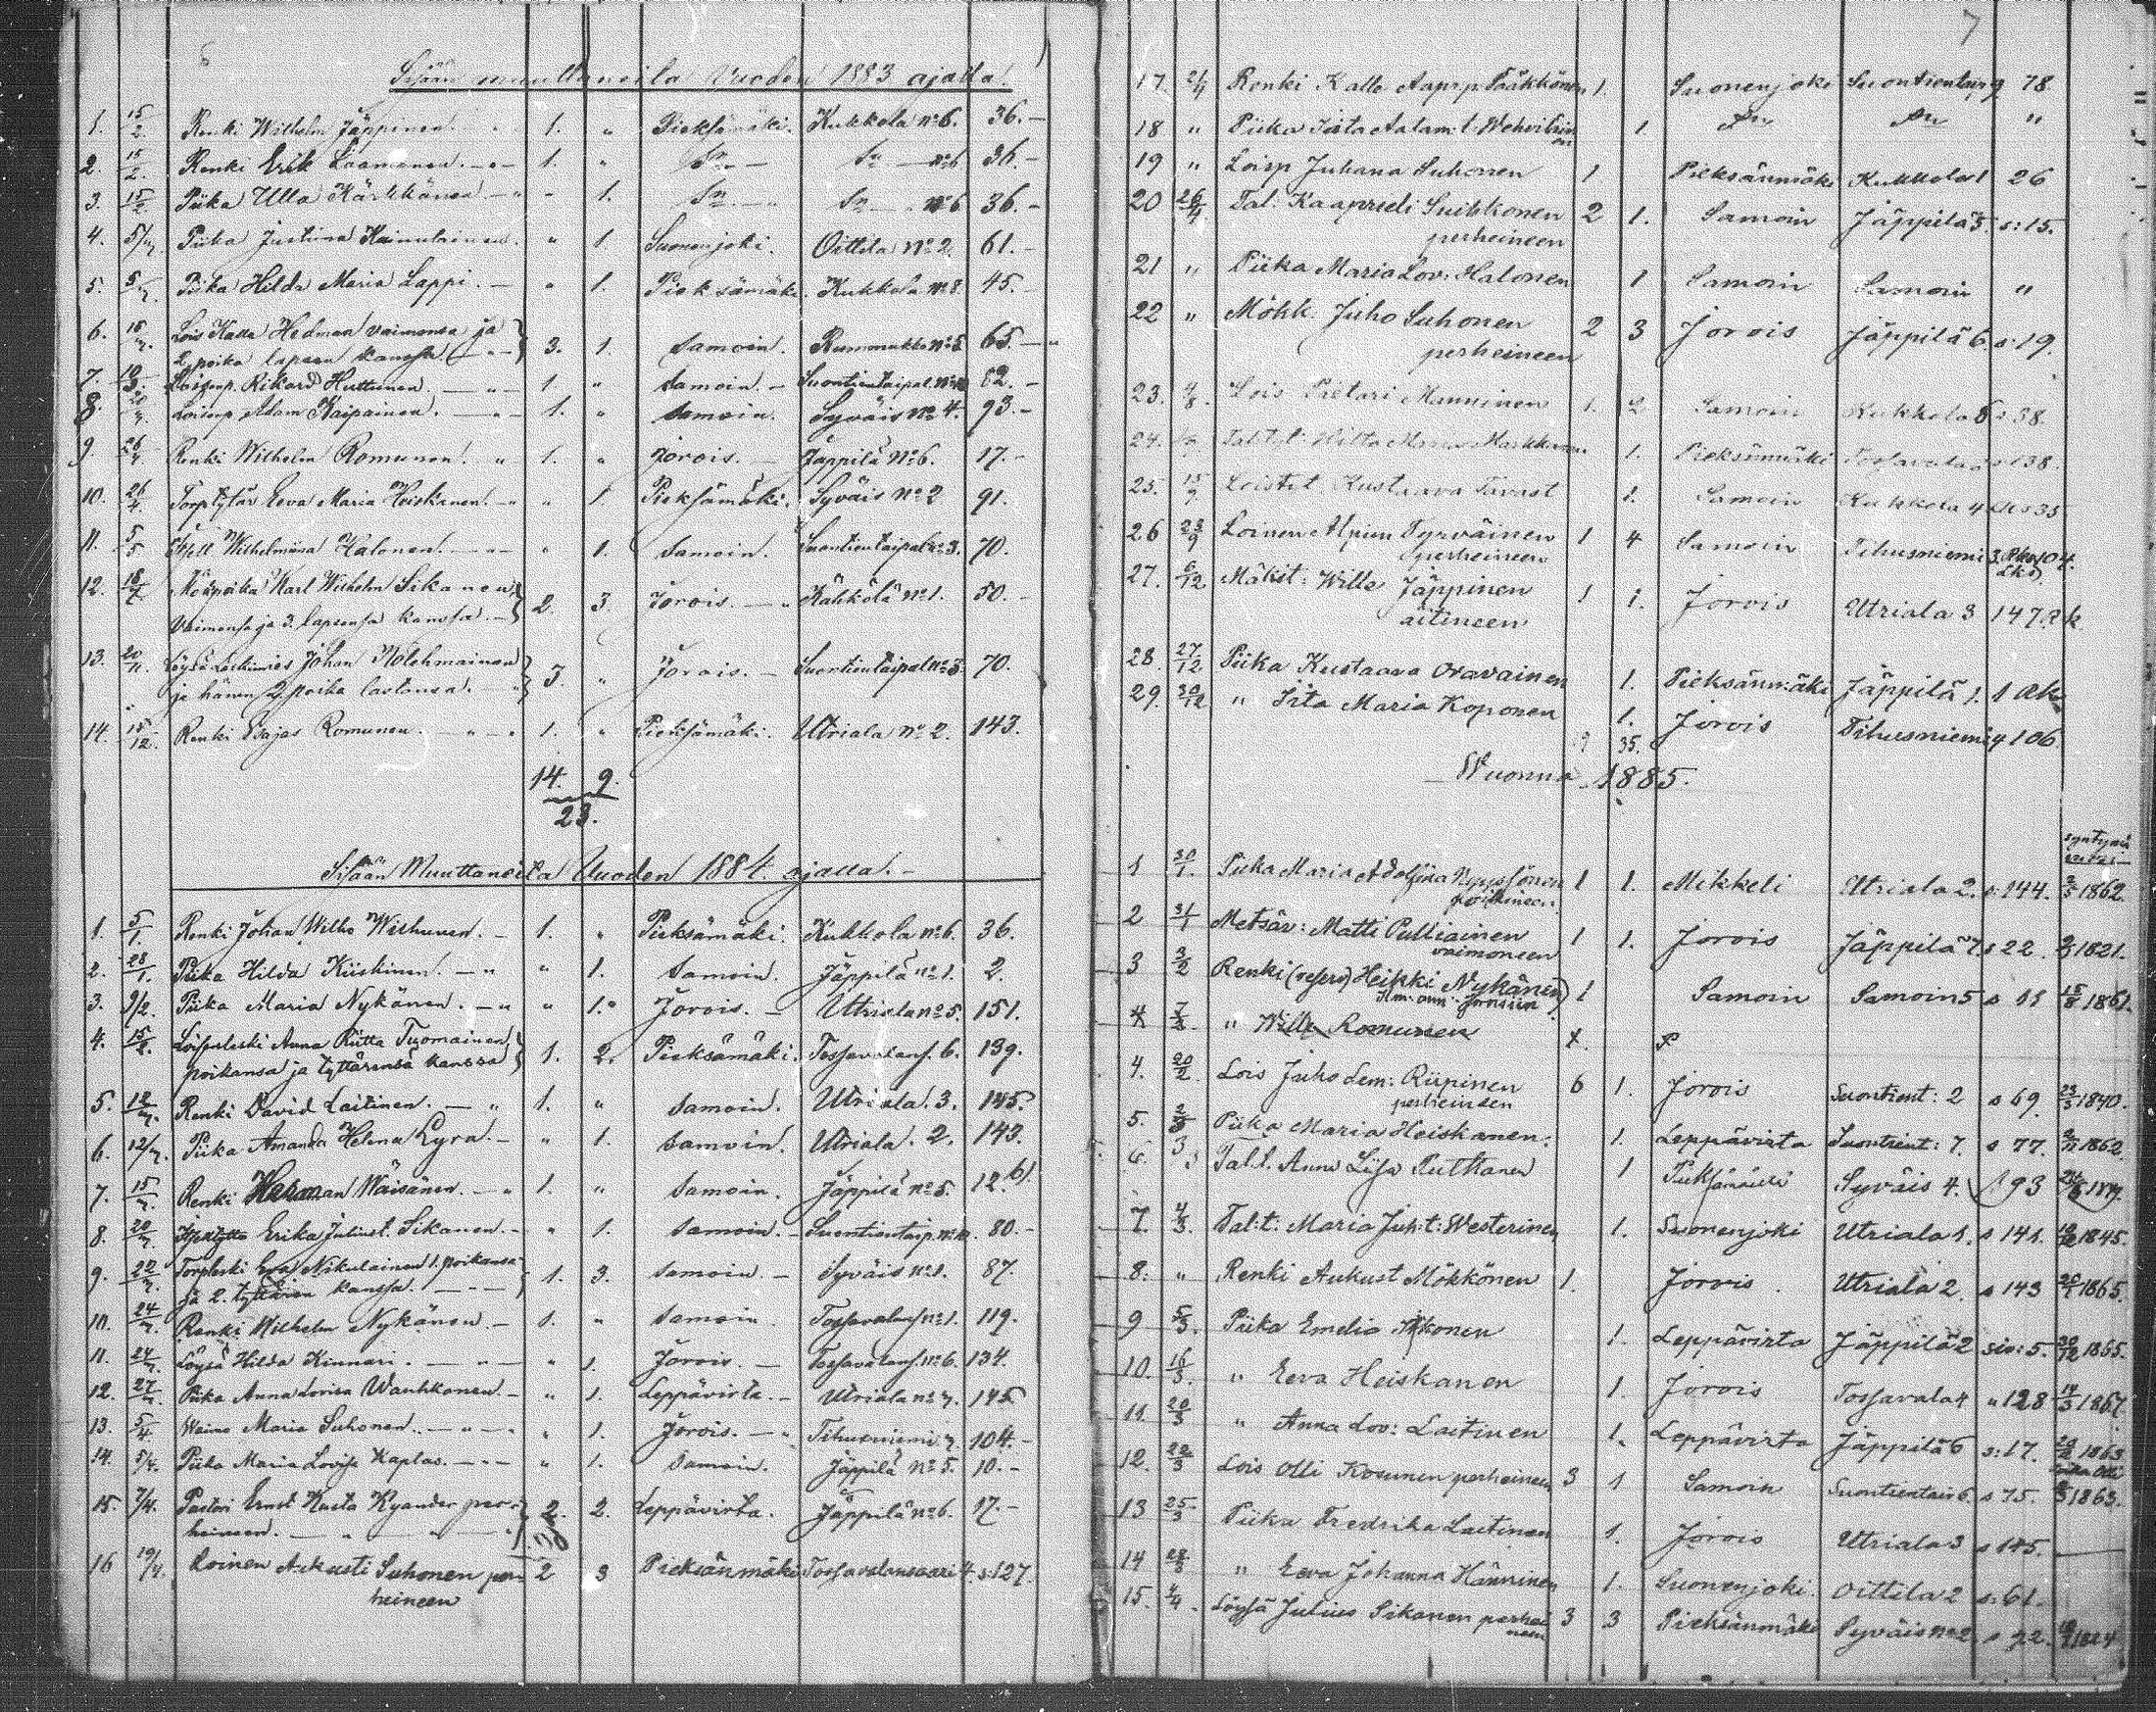 Sisään muuttaneita Vuoden 1883 ajalla.
1. 15/2. Renki Wilhelm Jäppinen. 1. " Pieksämäki. Kukkola No 6. 36.-
2. 15/2. Renki Erik Laamanen. - " - 1. " Sn - Sn - No 6 36.-
3. 15/2. Piika Ulla Kärkkänen - " - 1. Sn - " Sn - No 6 36.-
4. 5/3. Piika Justiina Kainulainen. " 1 Suonenjoki. Oittila No 2. 61.-
5. 5/3. Piika Hilda Maria Lappi. - " 1. Pieksämäki. Kukkola No 8. 45.-
6. 15/3. Lois Kalla Hedman vaimonsa ja
2 poika lapsen kanssa - " - 3. 1. Samoin. Rummukka No 5 65.-
7. 10/3. Loismp. Rikard Huttunen. - " - 1. " Samoin. - Suontientaipal. 82.-
8. 20/3. Loismp Adam Kaipainen. - " - 1. " Samoin. Syväis No 4. 93.-
9 26/4. Renki Wilhelm Romunen. " 1. " Jorois. - Jäppilä No 6. 17.-
10. 26/4. Torp tytär Eeva Maria Heiskanen. - " " 1 Pieksämäki. Syväis No 2 91.
11. 5/5 Wilhelmiina Halonen. - " - " 1. Samoin. Suontientaipal No 3. 70.
12. Karl Wilhelm Sikanen
vaimonsa ja 3. lapsensa kanssa. - 2. 3. Jorois. - " Kähkölä No 1. 50.-
13. 20/11. Löysä Leskimies Johan Kolehmainen
ja hänen 2 poika lastansa. - " 3. " Jorois. - Suontientaipal No 3. 70.
14. 15/12. Renki Esajas Romunen. - " - " 1. " Pieksämäki. Utriala No 2. 143.
14. 9.
23.
Sisään Muuttaneita Vuoden 1884. ajalla. -
1. 5/1. Renki Johan Wilho Wihunen. - 1. " Pieksämäki. Kukkola No 6. 36.
2. 28/1. Piika Hilda Kiiskinen. - " " 1. Samoin. Jäppilä No 1. 2.
3. 9/2. Piika Maria Nykänen. - " " 1. Jorois. - Utriala No 5. 151.
4. 15/2. Loispleski Anna Riitta Tuomainen,
poikansa ja tyttärensä kanssa 1. 2. Pieksämäki. Tossavalans. 6. 139.
5. 12/3. Renki David Laitinen. - " 1. " Samoin. Utriala. 3. 145.
6. 12/3. Piika Amanda Helena Lyra. - " 1. Samoin. Utriala. 2. 143.
7. 15/3. Renki Herman Wäisänen. - " 1. " Samoin. Jäppilä No 5. 12.
8. 20/3. Erika Juliust. Sikanen. - " 1. Samoin. - Suontientaip. 80.-
9. 22/3. Torpleski Eva Nikulainen 1. poikansa
ja 2. tyttären kanssa. - " - 1. 3. Samoin. - Syväis No 1. 87.
10. 24/3. Renki Wilhelm Nykänen. - 1. " Samoin. Tossavalans No 1. 119.
11. 24/3. Löysä Hilda Kinnari. - " - " 1. Jorois. - Tossavalans. No 6. 134.
12. 27/3. Piika Anna Lovisa Wauhkonen. - " 1. Leppävirta. - Utriala No 3. 145
13. 5/4 Waimo Maria Suhonen. - " - " " 1. Jorois. - " Tihusniemi 3. 104.-
14. 5/4. Piika Maria Lovisa Kaplas. - " - " 1. Samoin. Jäppilä No 5. 10.-
15. 7/4. Pastori Ernst Kusta Kyander per-
heineen. - " - " - 2. 2. Leppävirta. Jäppilä No 6. 17.-
16 19/4. Loinen Aukusti Suhonen per-
heineen 2 3 Pieksänmäki Tossavalansaari 4. s:127.
7
17. 21/4 Renki Kalle Aaprp. Pääkkönen 1. Suonenjoki Suontientaip 9 78
18 " Piika Iista Aatam:t: Wehviläinen 1 "
19 " Loisp Juhana Suhonen 1 Pieksänmäki Kukkola 1 26
20 26/4. Tal: Kaaprieli Suihkonen 2 1. Samoin Jäppilä 5. s:15.
perheineen
21 " Piika Maria Lov: Halonen 1 Samoin Samoin "
22 " Mökk. Juho Suhonen 2 3 Jorois Jäppilä 6. s:19.
perheineen
23. 4/8. Lois Pietari Manninen 1. 2 Samoin Kukkola 6 s 38.
24. Tal:tyt: Hilta Maria Markkanen. 1. Pieksänmäki Tossavala s 138.
25. 15/9 Loistyt. Kustaava Tavast 1. Samoin Kukkola 4 s 35
26 23/9 Loinen Alpiin Tyrväinen 1 4 Samoin Tihusniemi 3. 104.
perheineen
27. 6/12 Mäkit: Wille Jäppinen 1 1. Jorois Utriala 3 147. R.k.
äitineen
28. 27/12 Piika Kustaava Oravainen 1. Pieksänmäki Jäppilä 1. 1
29. 30/12 " Iita Maria Koponen 1. Jorois Tihusniemi 4 106
35.
Wuonna 1885.
syntymä
1 30/1. Piika Maria Adolfiina Nyyssönen 1 1. Mikkeli Utriala 2. s:144. 2/5 1862.
poikineen
2 31/1 Metsäv: Matti Pulliainen 1 1. Jorois Jäppilä 7. s 22. 1821.
vaimoneen
3 3/2 Renki (reserv) Heikki Nykänen 1 Samoin Samoin 5 s 11 15/8 1861.
4 7/2. " Wille Romunen
4. 20/2. Lois Juho Lem: Riipinen 6 1. Jorois Suontient: 2 s 69. 23/3 1840.
perheineen
5. 2/3 Piika Maria Heiskanen. 1. Leppävirta Suontient: 7. s 77. 1862.
6. 3/3 Tal.t. Anna Liisa Puttonen 1 Pieksämäki Syväis 4. s 93
7. 4/3. Tal:t: Maria Juh:t: Westerinen 1. Suonenjoki Utriala 1. s 141. 1845.
8. " Renki Aukust Mökkönen 1. Jorois. Utriala 2. s 143 1865.
9 5/3. Piika Emelia 1. Leppävirta Jäppilä 2 siv: 5. 20/12 1865.
10. 16/3. " Eeva Heiskanen 1. Jorois Tossavala 4 " 128 17/3 1867.
11. 20/3 " Anna Lov: Laitinen 1. Leppävirta Jäppilä 6 s:17. 1863
12. 22/3 Lois Olli Kosunen perheineen 3 1 Samoin Suontientaip 6. s 75. 1863.
13 25/3 Piika Fredrika Laitinen 1. Jorois Utriala 3 s 145.
14 28/3 " Eeva Johanna Hänninen 1. Suonenjoki. Oittila 2 s:61.
15. 4/4. Löysä Julius Sikanen perhei-
neen 3 3 Pieksänmäki Syväis No 2. s 92. 1824